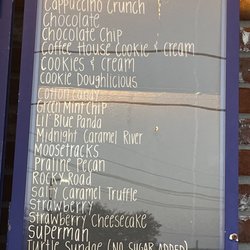 Cappuccino Crunch
Chocolate
Chocolate Chip
Coffee House Cookie & Cream
Cookies & Cream
Cookie Doughlicious
Cotton Candy
Green Mint Chip
Lil' Blue Panda
Midnight Caramel River
Moosetracks
Praline Pecan
Rocky Road
Salty Caramel Truffle
Strawberry
Strawberry Cheesecake
Superman
Turtle Sundae (NO SUGAR ADDED)